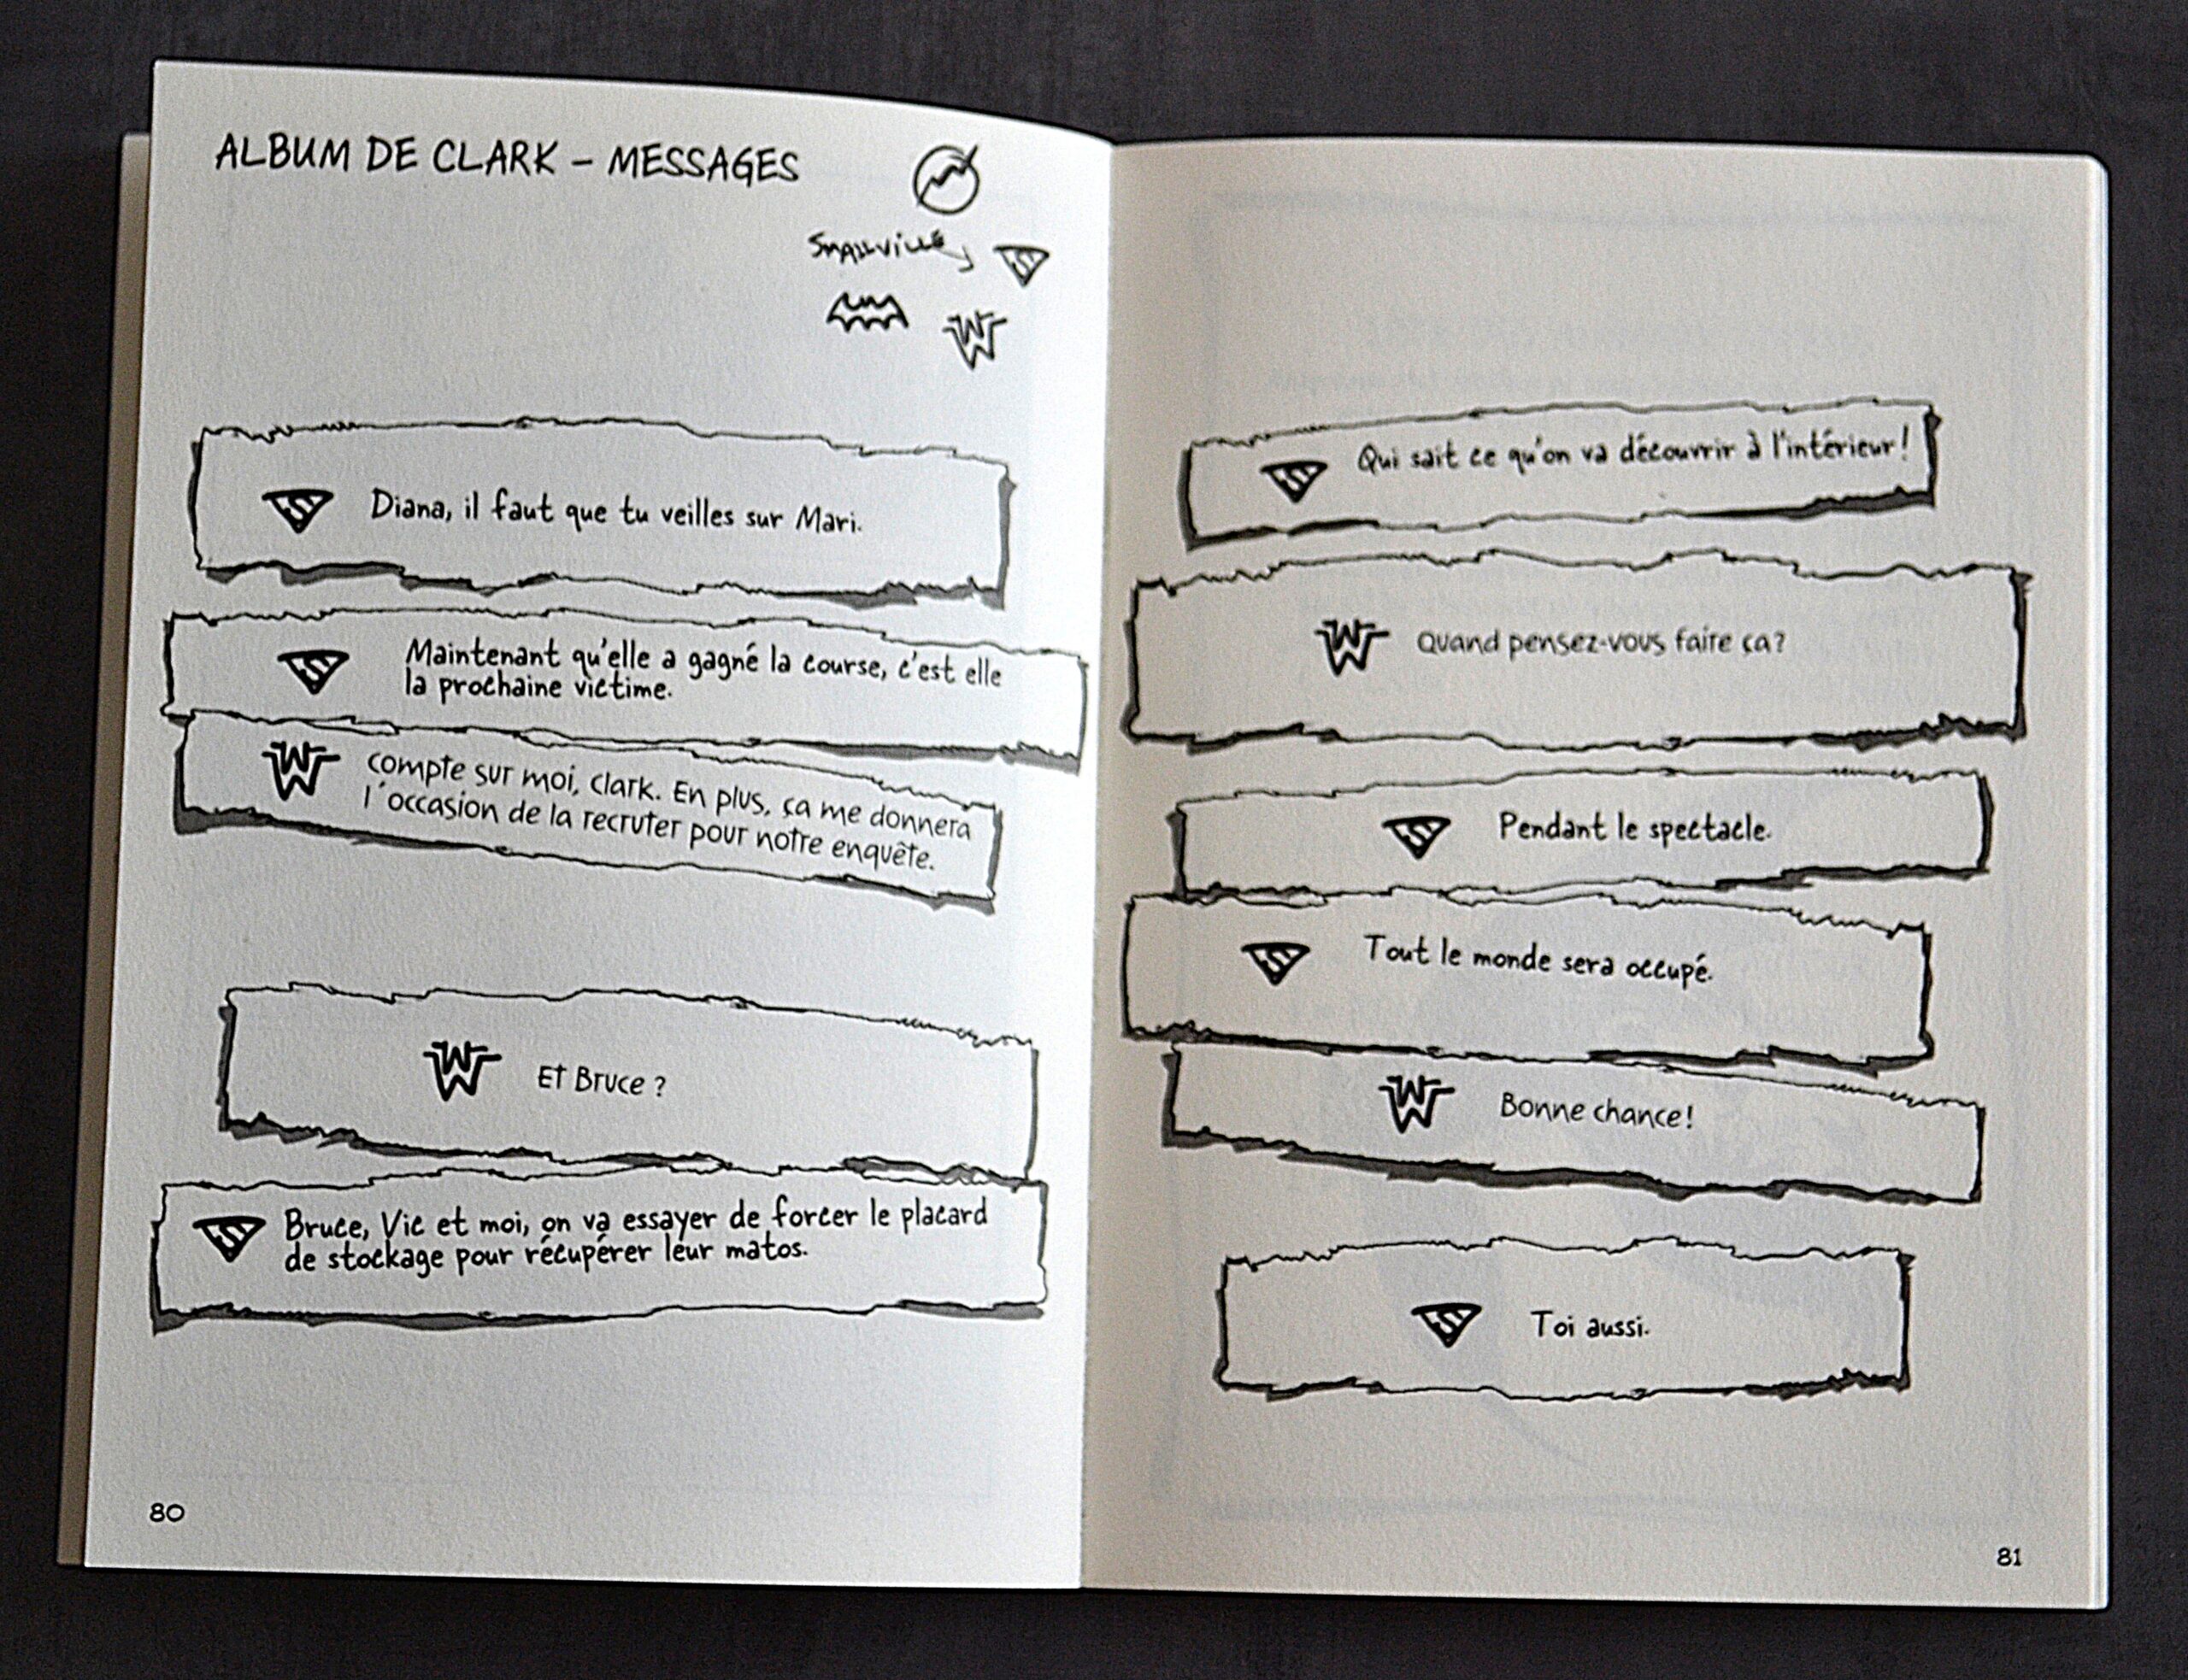 ALBUM DE CLARK – MESSAGES
SMALLVILLE
Diana, il faut que tu veilles sur Mari.
Maintenant qu'elle a gagné la course, c'est elle
la prochaine victime.
compte sur moi, clark. En plus, ça me donnera
l'occasion de la recruter pour notre enquête.
Et Bruce ?
Bruce, Vic et moi, on va essayer de forcer le placard
de stockage pour récupérer leur matos.
80
Qui sait ce qu'on va découvrir à l'intérieur !
Quand pensez-vous faire ça ?
Pendant le spectacle.
Tout le monde sera occupé.
Bonne chance !
Toi aussi.
81